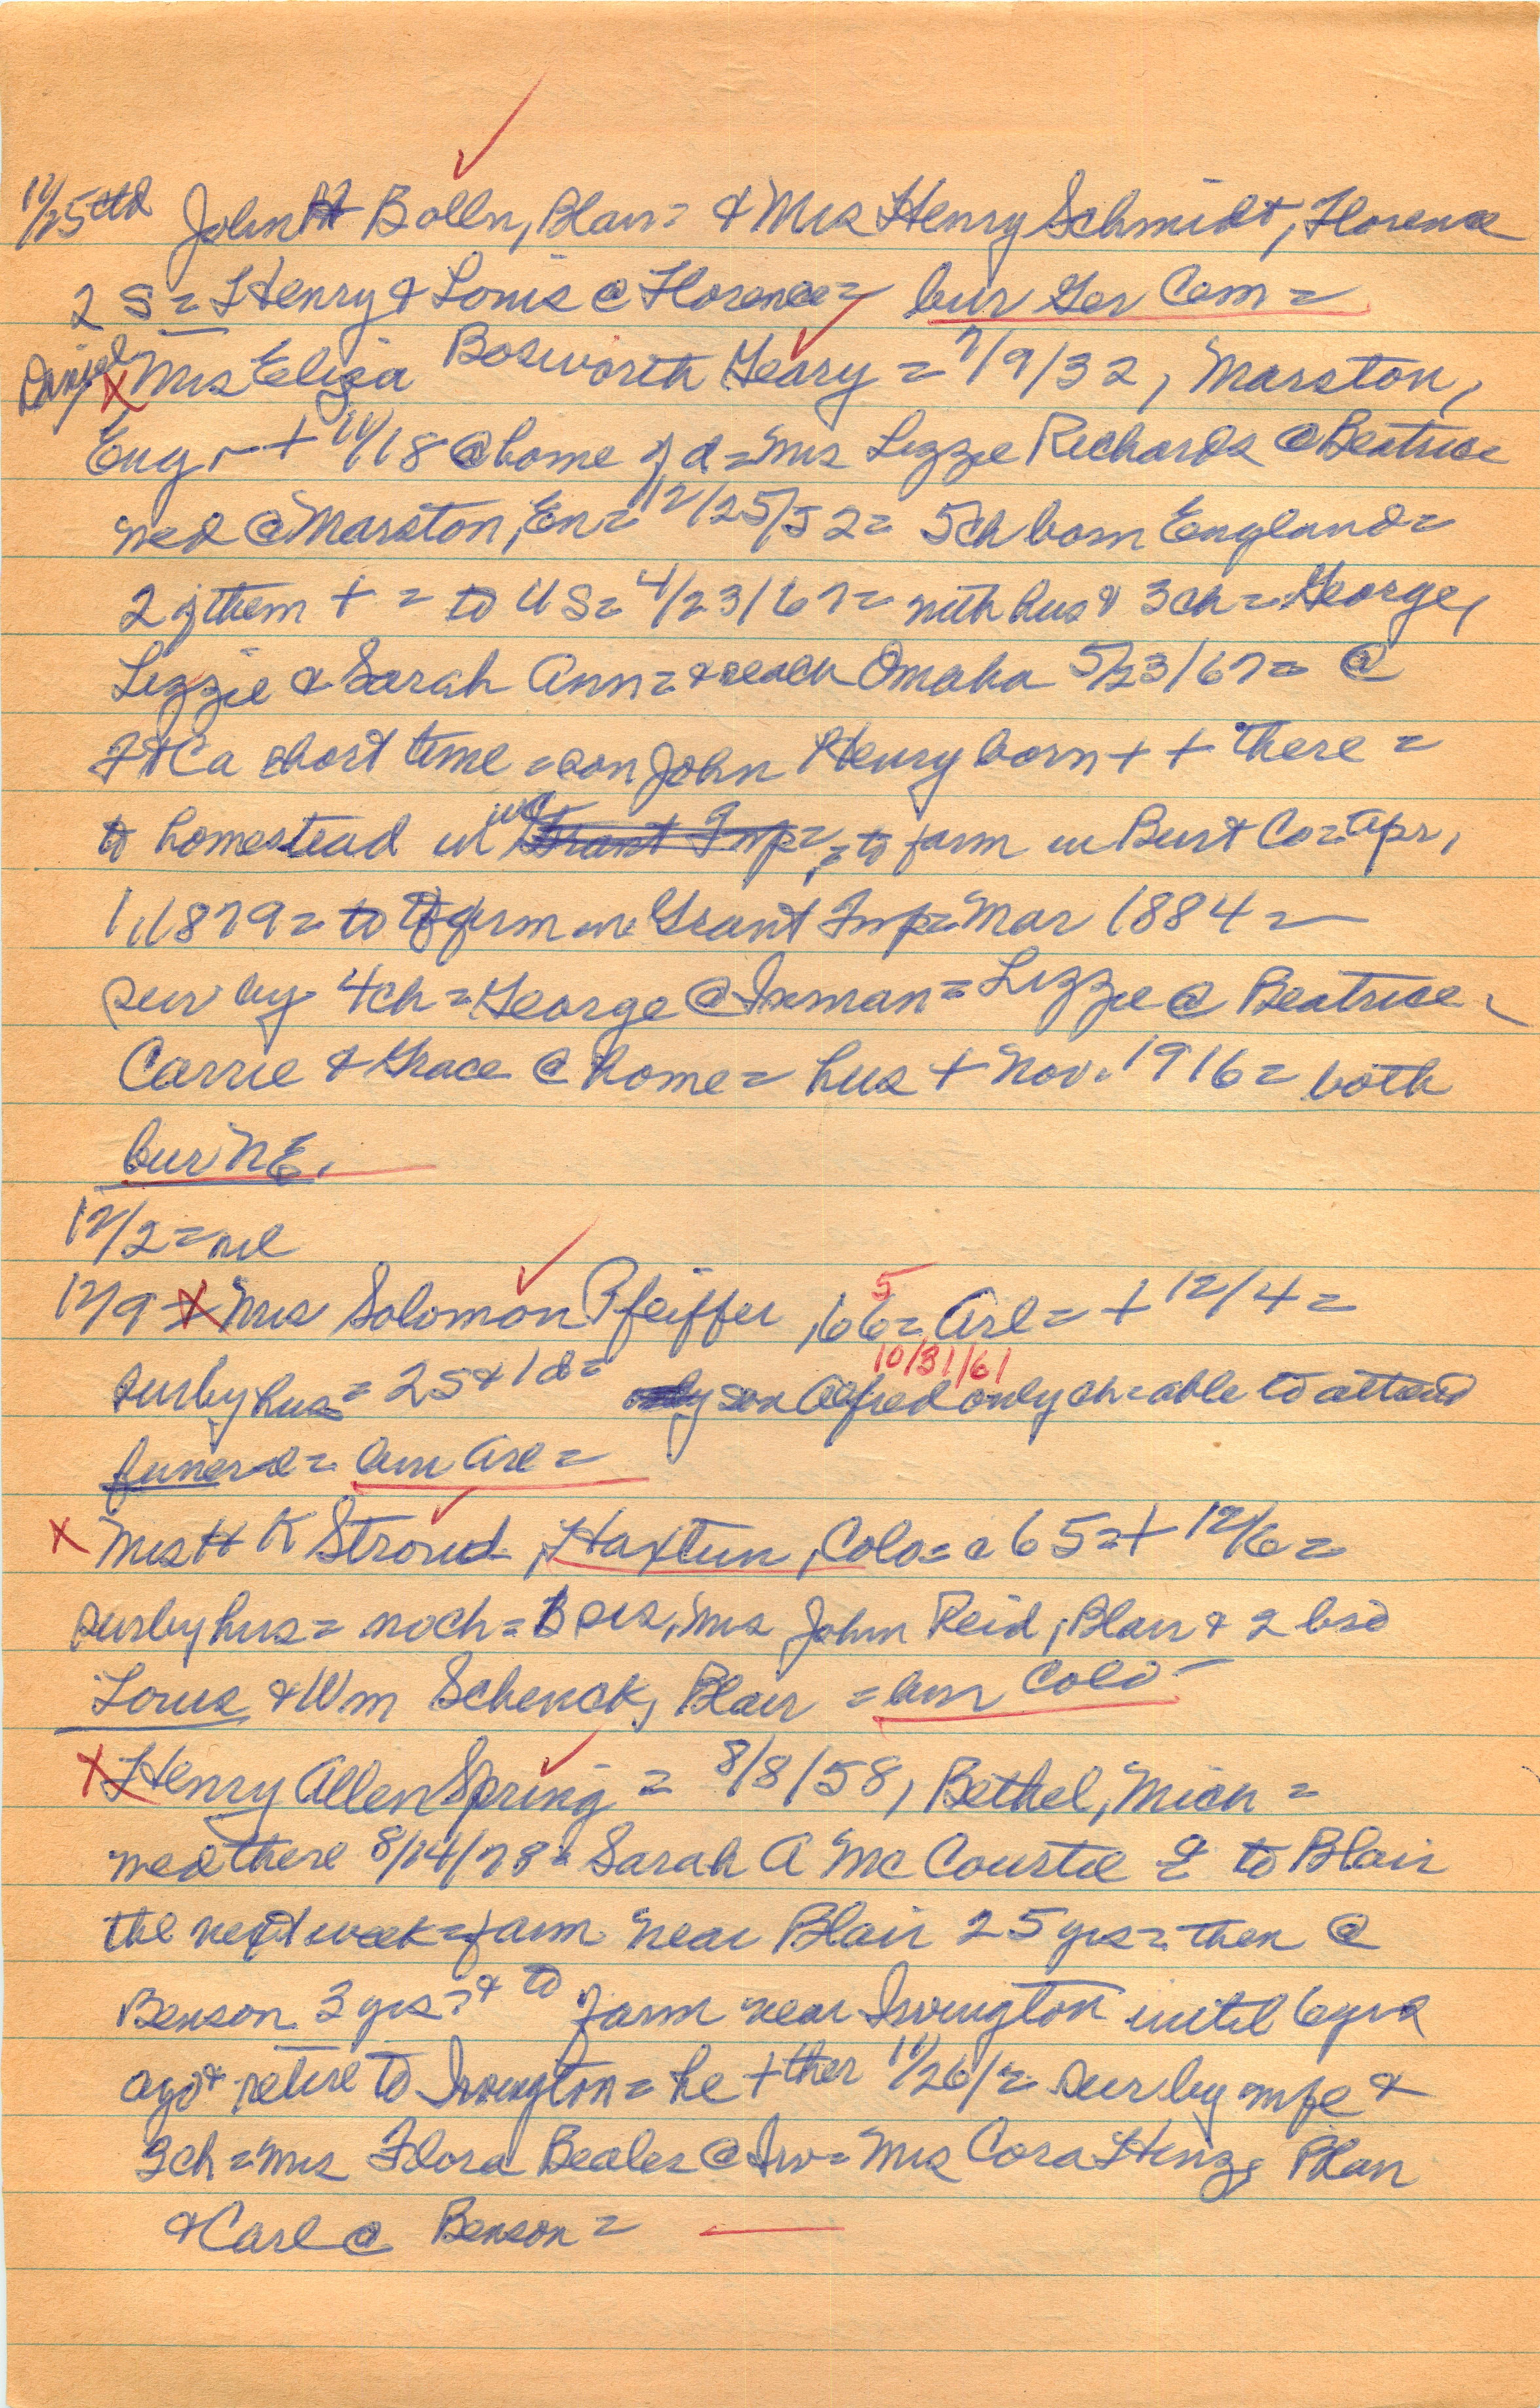 11/25 ctd John H Bolln, Blair = & Mrs Henry Schmidt, Florence
2 S = Henry & Louis @ Florence = bur Ger Cem =
Daniel
X Mrs Eliza Bosworth Geary = 7/9/32, Marston,
Eng, + 11/18 @ home of d = Mrs Lizzie Richards @ Beatrice
wed @ Marston, En = 12/25/52 = 5 ch born England =
2 of them + = to US = 4/23/67 = with hus & 3 ch = George,
Lizzie & Sarah Ann = & reach Omaha 5/23/67 = @
Ft C a short time = son John Henry born & + there =
to homestead in WC Grant Twp = , = to farm in Burt Co = Apr,
1, 1879 = to farm in Grant Twp = Mar 1884 =
sur by 4 ch = George @ Inman = Lizzie @ Beatrice
Carrie & Grace @ home = hus + Nov. 1916 = both
bur NE.
12/2 = nil
12/9 = X Mrs Solomon Pfeiffer, 66 = Arl = + 12/4 =
5
10/31/61
sur by hus = 2 S & 1 d = only son Alfred only ch = able to attend
funeral = bur Arl =
X Mrs H K Stroud, Haxtun, Colo = a 65 = + 12/6 =
sur by hus = no ch = sis, Mrs John Reid, Blair & 2 bro
Louis & Wm Schenck, Blair = bur Colo
X Henry Allen Spring = 8/8/58, Bethel, Mich =
wed there 8/14/78 = Sarah A McCourtie & to Blair
the next week = farm near Blair 25 yrs = then @
Benson 3 yrs = & to farm near Irvington until 6 yrs
ago & retire to Irvington = he + ther 11/26/ = sur by wife &
3 ch = Mrs Flora Beales @ Irv = Mrs Cora Hinz, Blair
& Carl @ Benson =